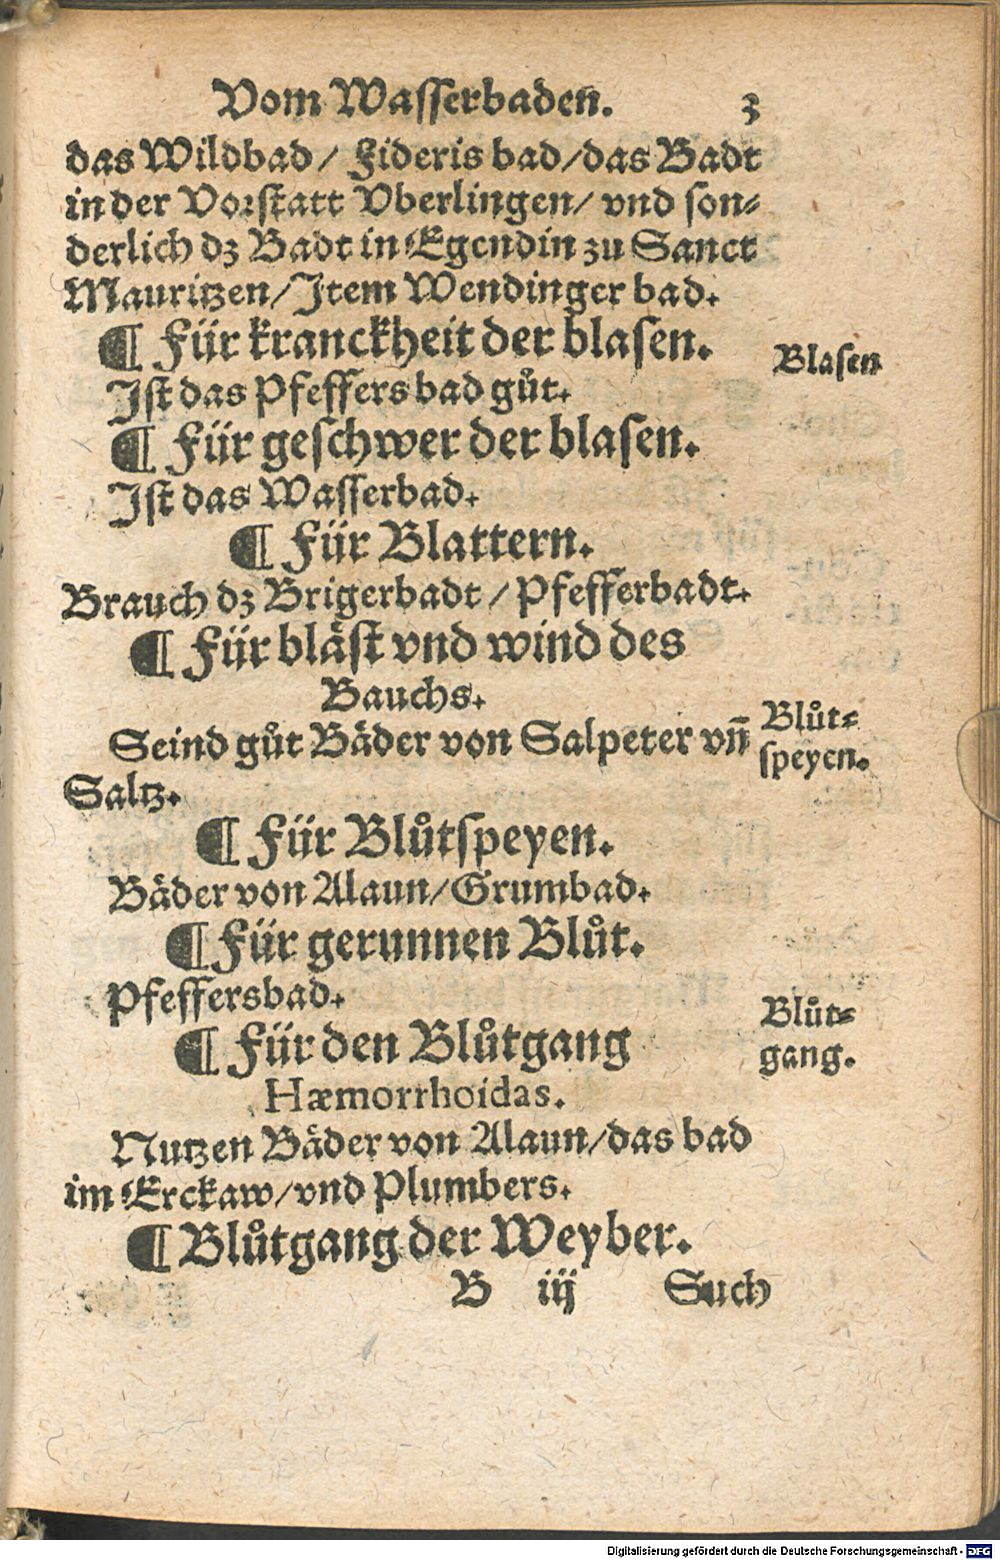 Vom Wasserbaden. 3
das Wildbad / Fideris bad / das Badt
in der Vorstatt Vberlingen / vnd son⸗
derlich dz Badt in Egendin zu Sanct
Mauritzen / Item Wendinger bad.
¶ Für kranckheit der blasen.
Blasen
Ist das Pfeffers bad gůt.
¶ Für geschwer der blasen.
Ist das Wasserbad.
¶ Für Blattern.
Brauch dz Brigerbadt / Pfefferbadt.
¶ Für bläst vnd wind des
Bauchs.
Seind gůt Bäder von Salpeter vn̄
Saltz.
Blůt⸗
speyen.
¶ Für Blůtspeyen.
Bäder von Alaun / Grumbad.
¶ Für gerunnen Blůt.
Pfeffersbad.
¶ Für den Blůtgang
Hæmorrhoidas.
Blůt⸗
gang.
Nutzen Bäder von Alaun / das bad
im Erckaw / vnd Plumbers.
¶ Blůtgang der Weyber.
B iij Such
Digitalisierung gefördert durch die Deutsche Forschungsgemeinschaft - DFG